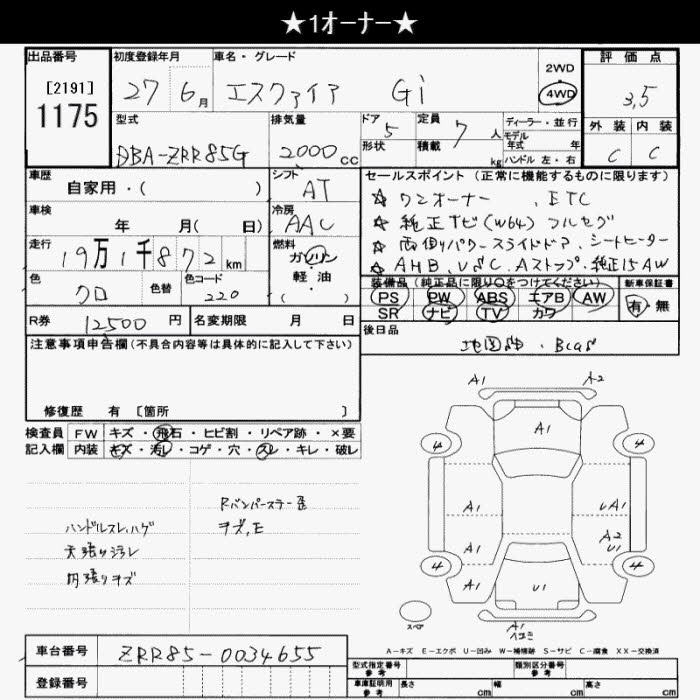 ★1オーナー★
出品番号 初度登録年月 車名・グレード 評価点
[2191] 27 6月 エスクァイア Gi 2WD 4WD 3,5
1175
型式 排気量 ドア 5 定員 7 人 ディーラー・並行 外装 内装
DBA-ZRR85G 2000cc 形状 積載 kg モデル年式 年 ハンドル 左・右 C C
車歴 シフト セールスポイント(正常に機能するものに限ります)
自家用・( ) AT ★ワンオーナー、ETC
車検 冷房 ★純正TV(W64)フルセグ
年 月( 日) AAC ★両側パワースライドドア、シートヒーター
走行 19万1千872km 燃料 ガソリン 軽・油 ( ) ★AHB、VSC、Aストップ・純正15AW
色 クロ 色替 色コード 220 装備品(純正品に限り○をつけてください) 新車保証書
PS PW ABS エアB AW 有・無
SR ナビ TV カワ
R券 12500円 名変期限 月 日 後日品
注意事項申告欄(不具合内容等は具体的に記入して下さい) 地図SD・Bcas
修復歴 有 [箇所 ]
検査員 FW キズ・飛石・ヒビ割・リペア跡・×要
記入欄 内装 キズ・汚レ・コゲ・穴・スレ・キレ・破レ
Rバンパーステー歪
ハンドルスレ、ハゲ キズ、E
天張り汚レ
内張りキズ
A1 A2
A1
4 4
A1 UA1
A1 A2
U1
4 4
A1 U1
スペア A1
A-キズ E-エクボ U-凹み W-補修跡 S-サビ C-腐食 XX-交換済
車台番号 ZRR85-0034655
登録番号
型式指定番号 参考 類別区分番号 参考
車庫証明用 参考 長さ cm 幅 cm 高さ cm